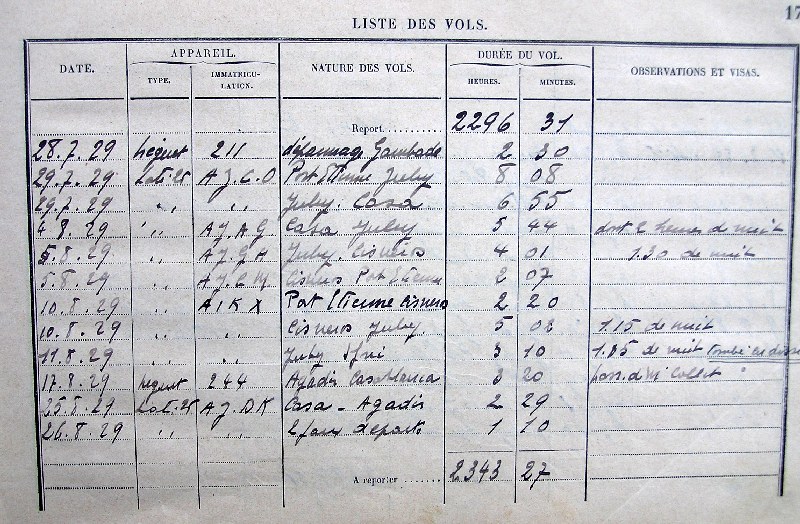 17
LISTE DES VOLS.
DATE. APPAREIL. NATURE DES VOLS. DURÉE DU VOL. OBSERVATIONS ET VISAS.
TYPE. IMMATRICU-LATION. HEURES. MINUTES.
Report 2296 31
28.7.29 211 dépannage Gambade 2 30
29.7.29 Laté.25 A J.C.O Port Etienne Juby 8 08
29.7.29 " " Juby. Casa 6 55
4.8.29 " A J.A G Casa Juby 5 44 dont 2 heures de nuit
5.8.29 " Juby. Cisneros 4 01 1.30 de nuit
5.8.29 " Cisneros Port Etienne 2 07
10.8.29 " A I K X Port Etienne Cisneros 2 20
10.8.29 " " Cisneros Juby 5 08 1.15 de nuit
11.8.29 " " Juby Ifni 3 10 1.35 de nuit
17.8.29 244 Agadir Casablanca 3 20 Collet
25.8.29 Laté.25 A J.D K Casa - Agadir 2 29
26.8.29 " " 2 faux départs 1 10
A reporter 2343 27